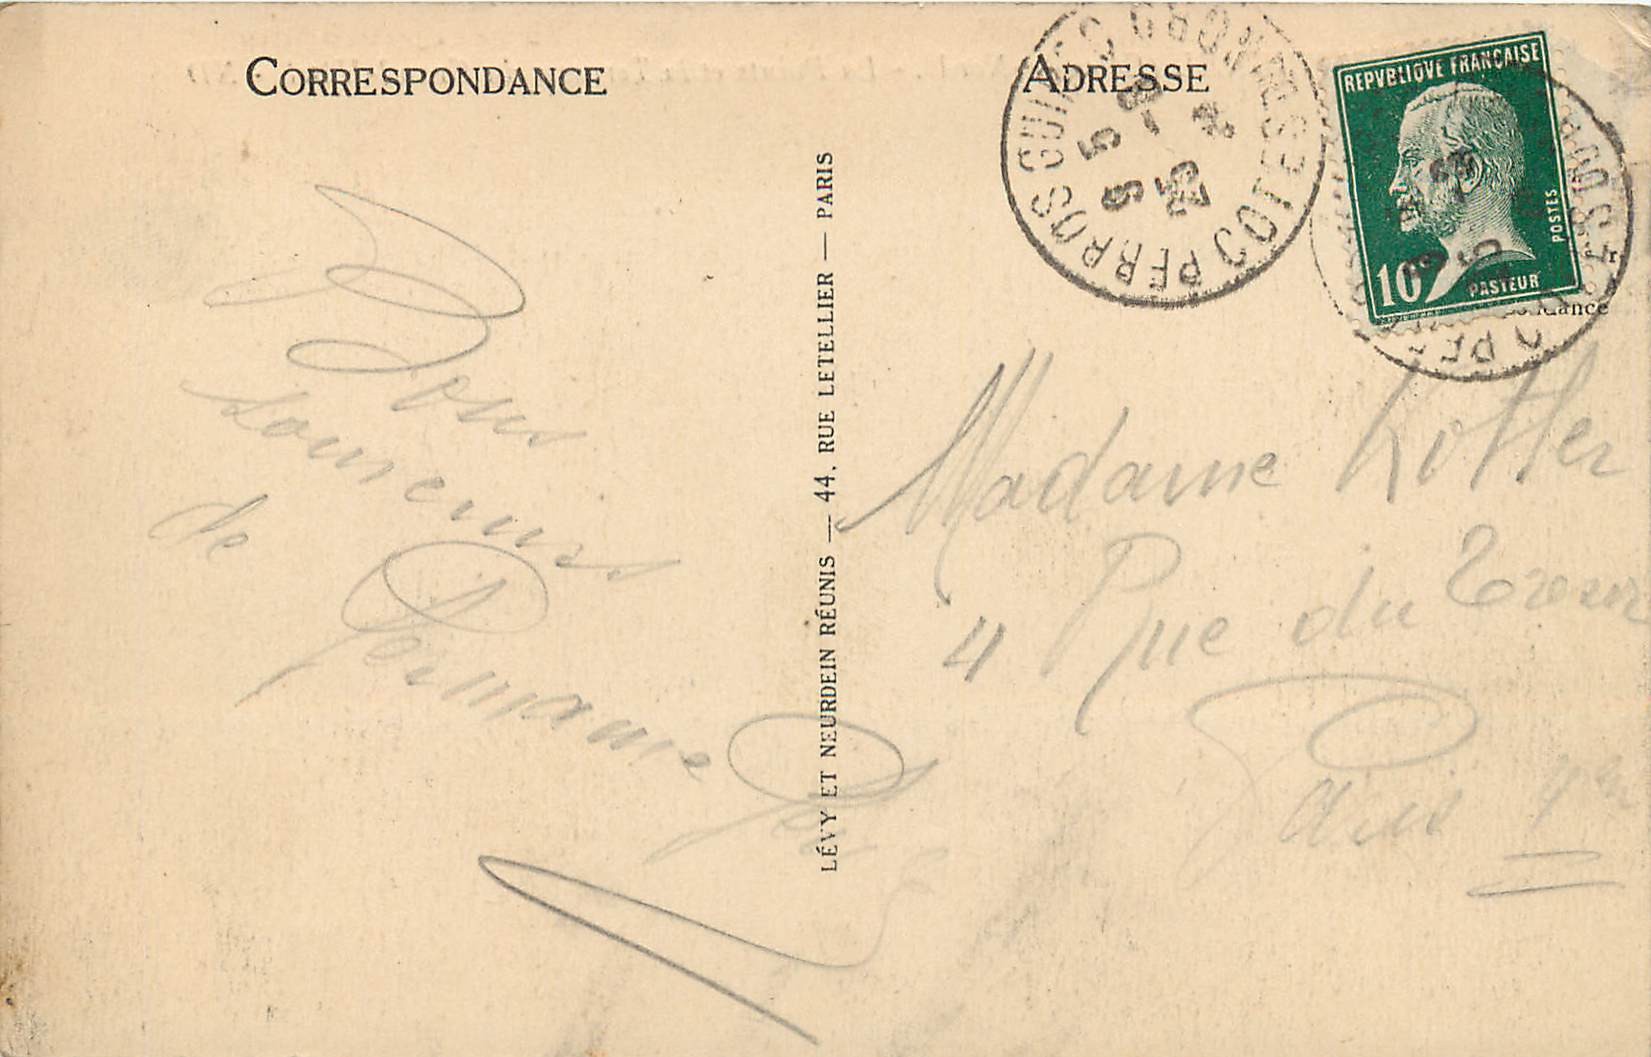 CORRESPONDANCE
Bons
souvenirs
de
Germaine
LÉVY ET NEURDEIN RÉUNIS — 44, RUE LETELLIER — PARIS
ADRESSE
PERROS GUIREC COTES DU NORD
REPVBLIQVE FRANÇAISE
POSTES
10c
PASTEUR
Madame
4 Rue du
Paris